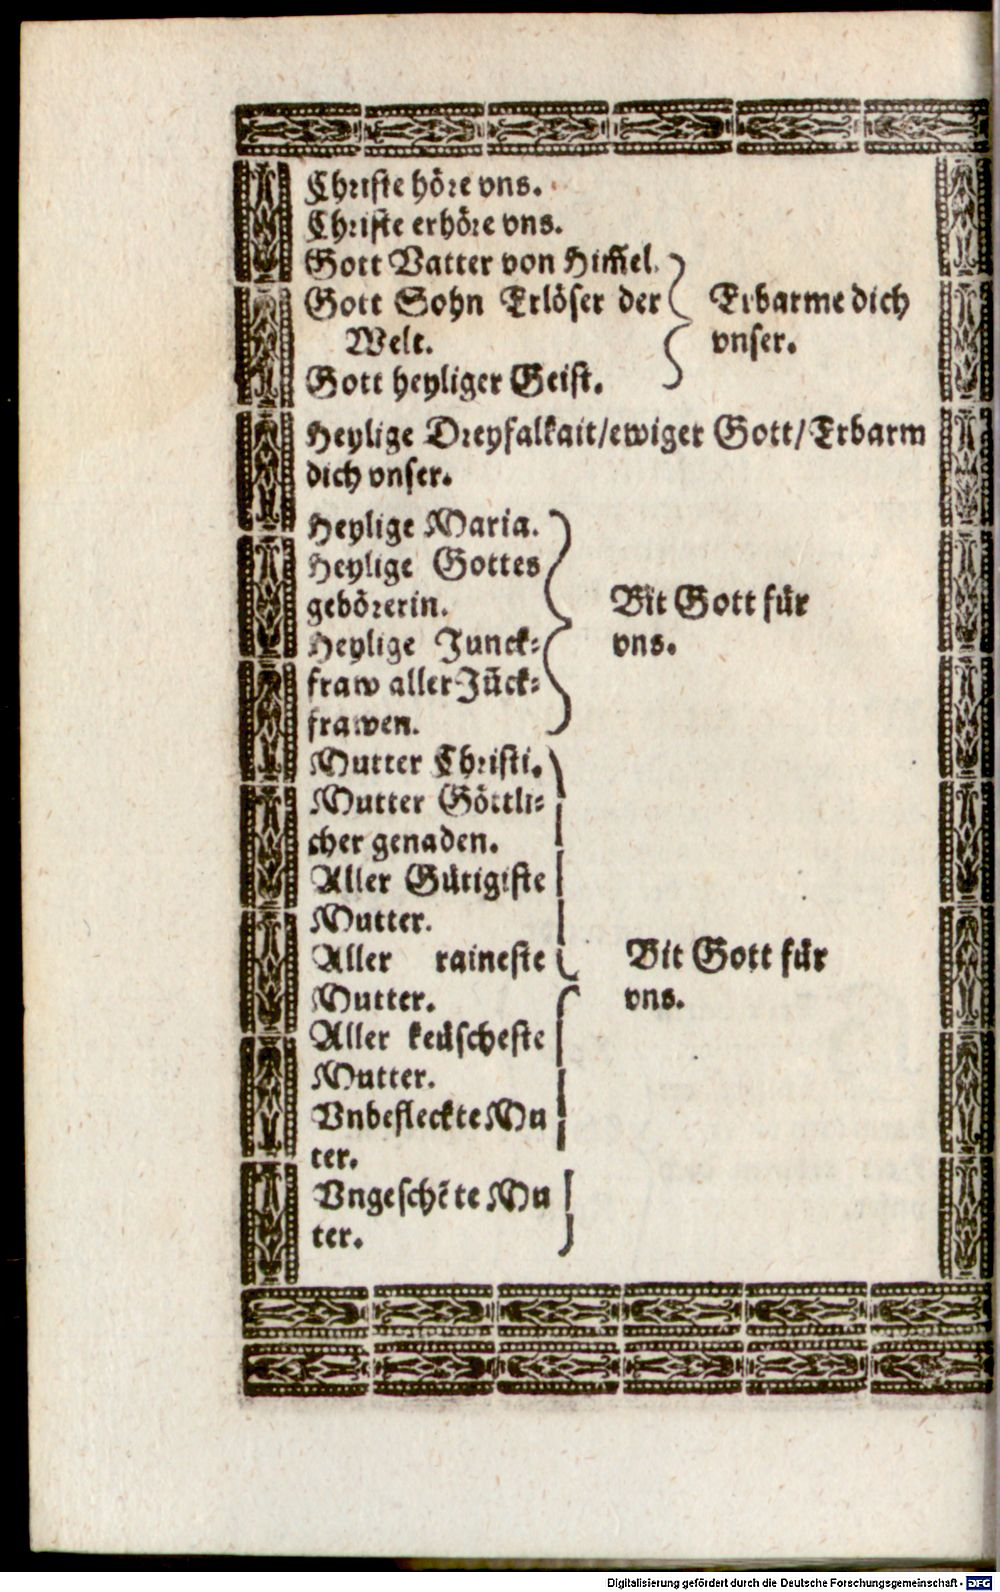 Christe höre vns.
Christe erhöre vns.
Gott Vatter von Him̃el.
Gott Sohn Erlöser der
Welt.
Gott heyliger Geist.
Erbarme dich
vnser.
Heylige Dreyfalkait/ewiger Gott/Erbarm
dich vnser.
Heylige Maria.
Heylige Gottes
gebörerin.
Heylige Junck-
fraw aller Jũck-
frawen.
Bit Gott für
vns.
Mutter Christi.
Mutter Göttli-
cher genaden.
Aller Gütigiste
Mutter.
Aller raineste
Mutter.
Aller keüscheste
Mutter.
Vnbefleckte Mu
ter.
Vngeschẽte Mu
ter.
Bit Gott für
vns.
Digitalisierung gefördert durch die Deutsche Forschungsgemeinschaft - DFG